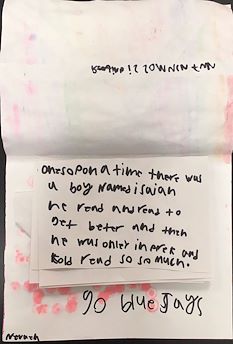 onesopon a time there was
a boy named isaiah
he read and read to
get beter and then
he was onley in prek and
cold read so so much.
go blue Jays